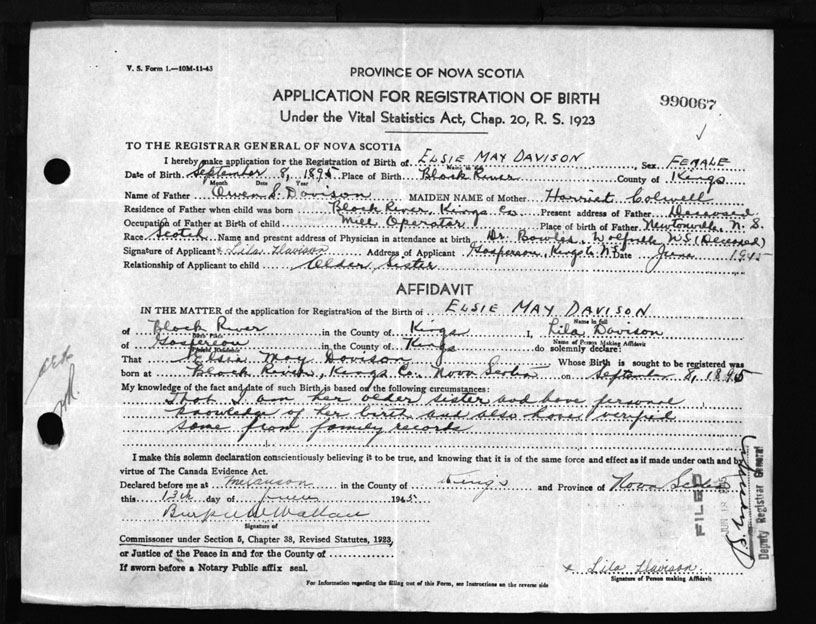 V. S. Form 1.—10M-11-43
PROVINCE OF NOVA SCOTIA
APPLICATION FOR REGISTRATION OF BIRTH
990067
Under the Vital Statistics Act, Chap. 20, R. S. 1923
TO THE REGISTRAR GENERAL OF NOVA SCOTIA
I hereby make application for the Registration of Birth of ELSIE MAY DAVISON, Sex FEMALE
Name in full
Date of Birth September 8, 1895 Place of Birth Black River County of Kings
Month Date Year
Name of Father Owen S. Davison MAIDEN NAME of Mother Harriet Colwell
Residence of Father when child was born Black River, Kings Co Present address of Father Deceased
Occupation of Father at Birth of child Mill Operator Place of birth of Father Newtonville, N. S.
Race Scotch Name and present address of Physician in attendance at birth Dr. Bowles, Wolfville N.S. (Deceased)
Signature of Applicant x Lila Davison Address of Applicant Gaspereau, Kings Co. N.S. Date June 1945
Relationship of Applicant to child Older Sister
AFFIDAVIT
IN THE MATTER of the application for Registration of the Birth of ELSIE MAY DAVISON
Name in full
of Black River in the County of Kings I, Lila Davison
Birth Place Name of Person Making Affidavit
of Gaspereau in the County of Kings do solemnly declare:
Present Residence
That Elsie May Davison Whose Birth is sought to be registered was
born at Black River, Kings Co. Nova Scotia on September 8, 1895
My knowledge of the fact and date of such Birth is based on the following circumstances:
That I am her older sister and have personal
knowledge of her birth and also have verified
same from family records
I make this solemn declaration conscientiously believing it to be true, and knowing that it is of the same force and effect as if made under oath and by
virtue of The Canada Evidence Act.
Declared before me at Melanson in the County of Kings and Province of Nova Scotia
this 13th day of June 1945
Burpee W Wallace
Signature of
Commissioner under Section 5, Chapter 38, Revised Statutes, 1923,
or Justice of the Peace in and for the County of
If sworn before a Notary Public affix seal.
x Lila Davison
Signature of Person making Affidavit
For Information regarding the filling out of this Form, see Instructions on the reverse side
FILED
JUN 18 1945
Deputy Registrar General